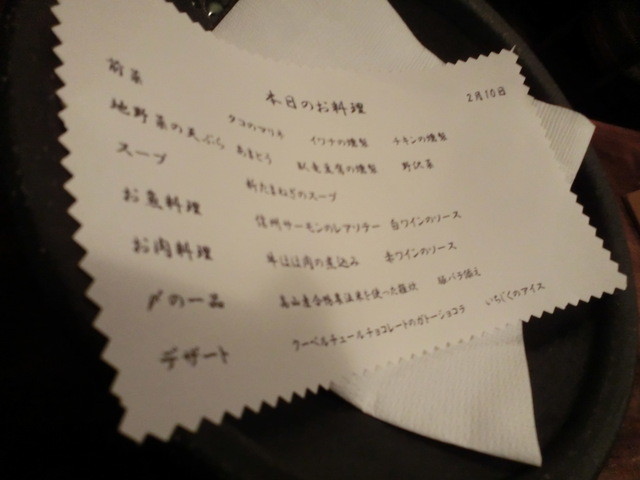 本日のお料理
2月10日
前菜 タコのマリネ イワナの燻製 チキンの燻製
地野菜の天ぷら あまとう 豆腐の燻製 野沢菜
スープ 新たまねぎのスープ
お魚料理 信州サーモンのレアソテー 白ワインのソース
お肉料理 牛ほほ肉の煮込み 赤ワインのソース
〆の一品 を使った雑炊 豚バラ添え
デザート クーベルチュールチョコレートのガトーショコラ いちじくのアイス